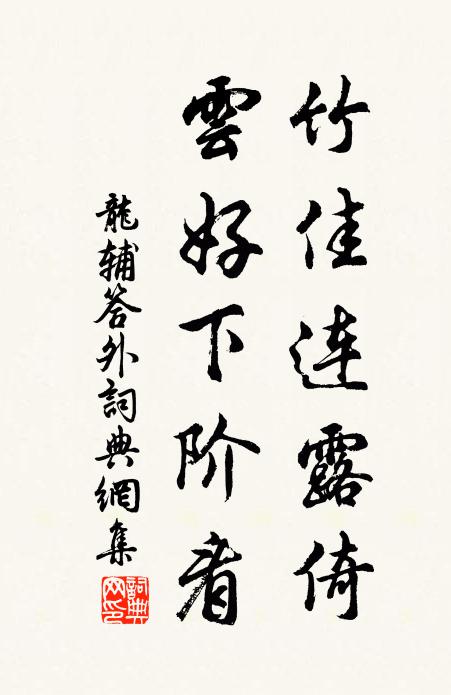 竹佳連露倚
雲好下阶看
龍辅答外詞典網集
詞典网印